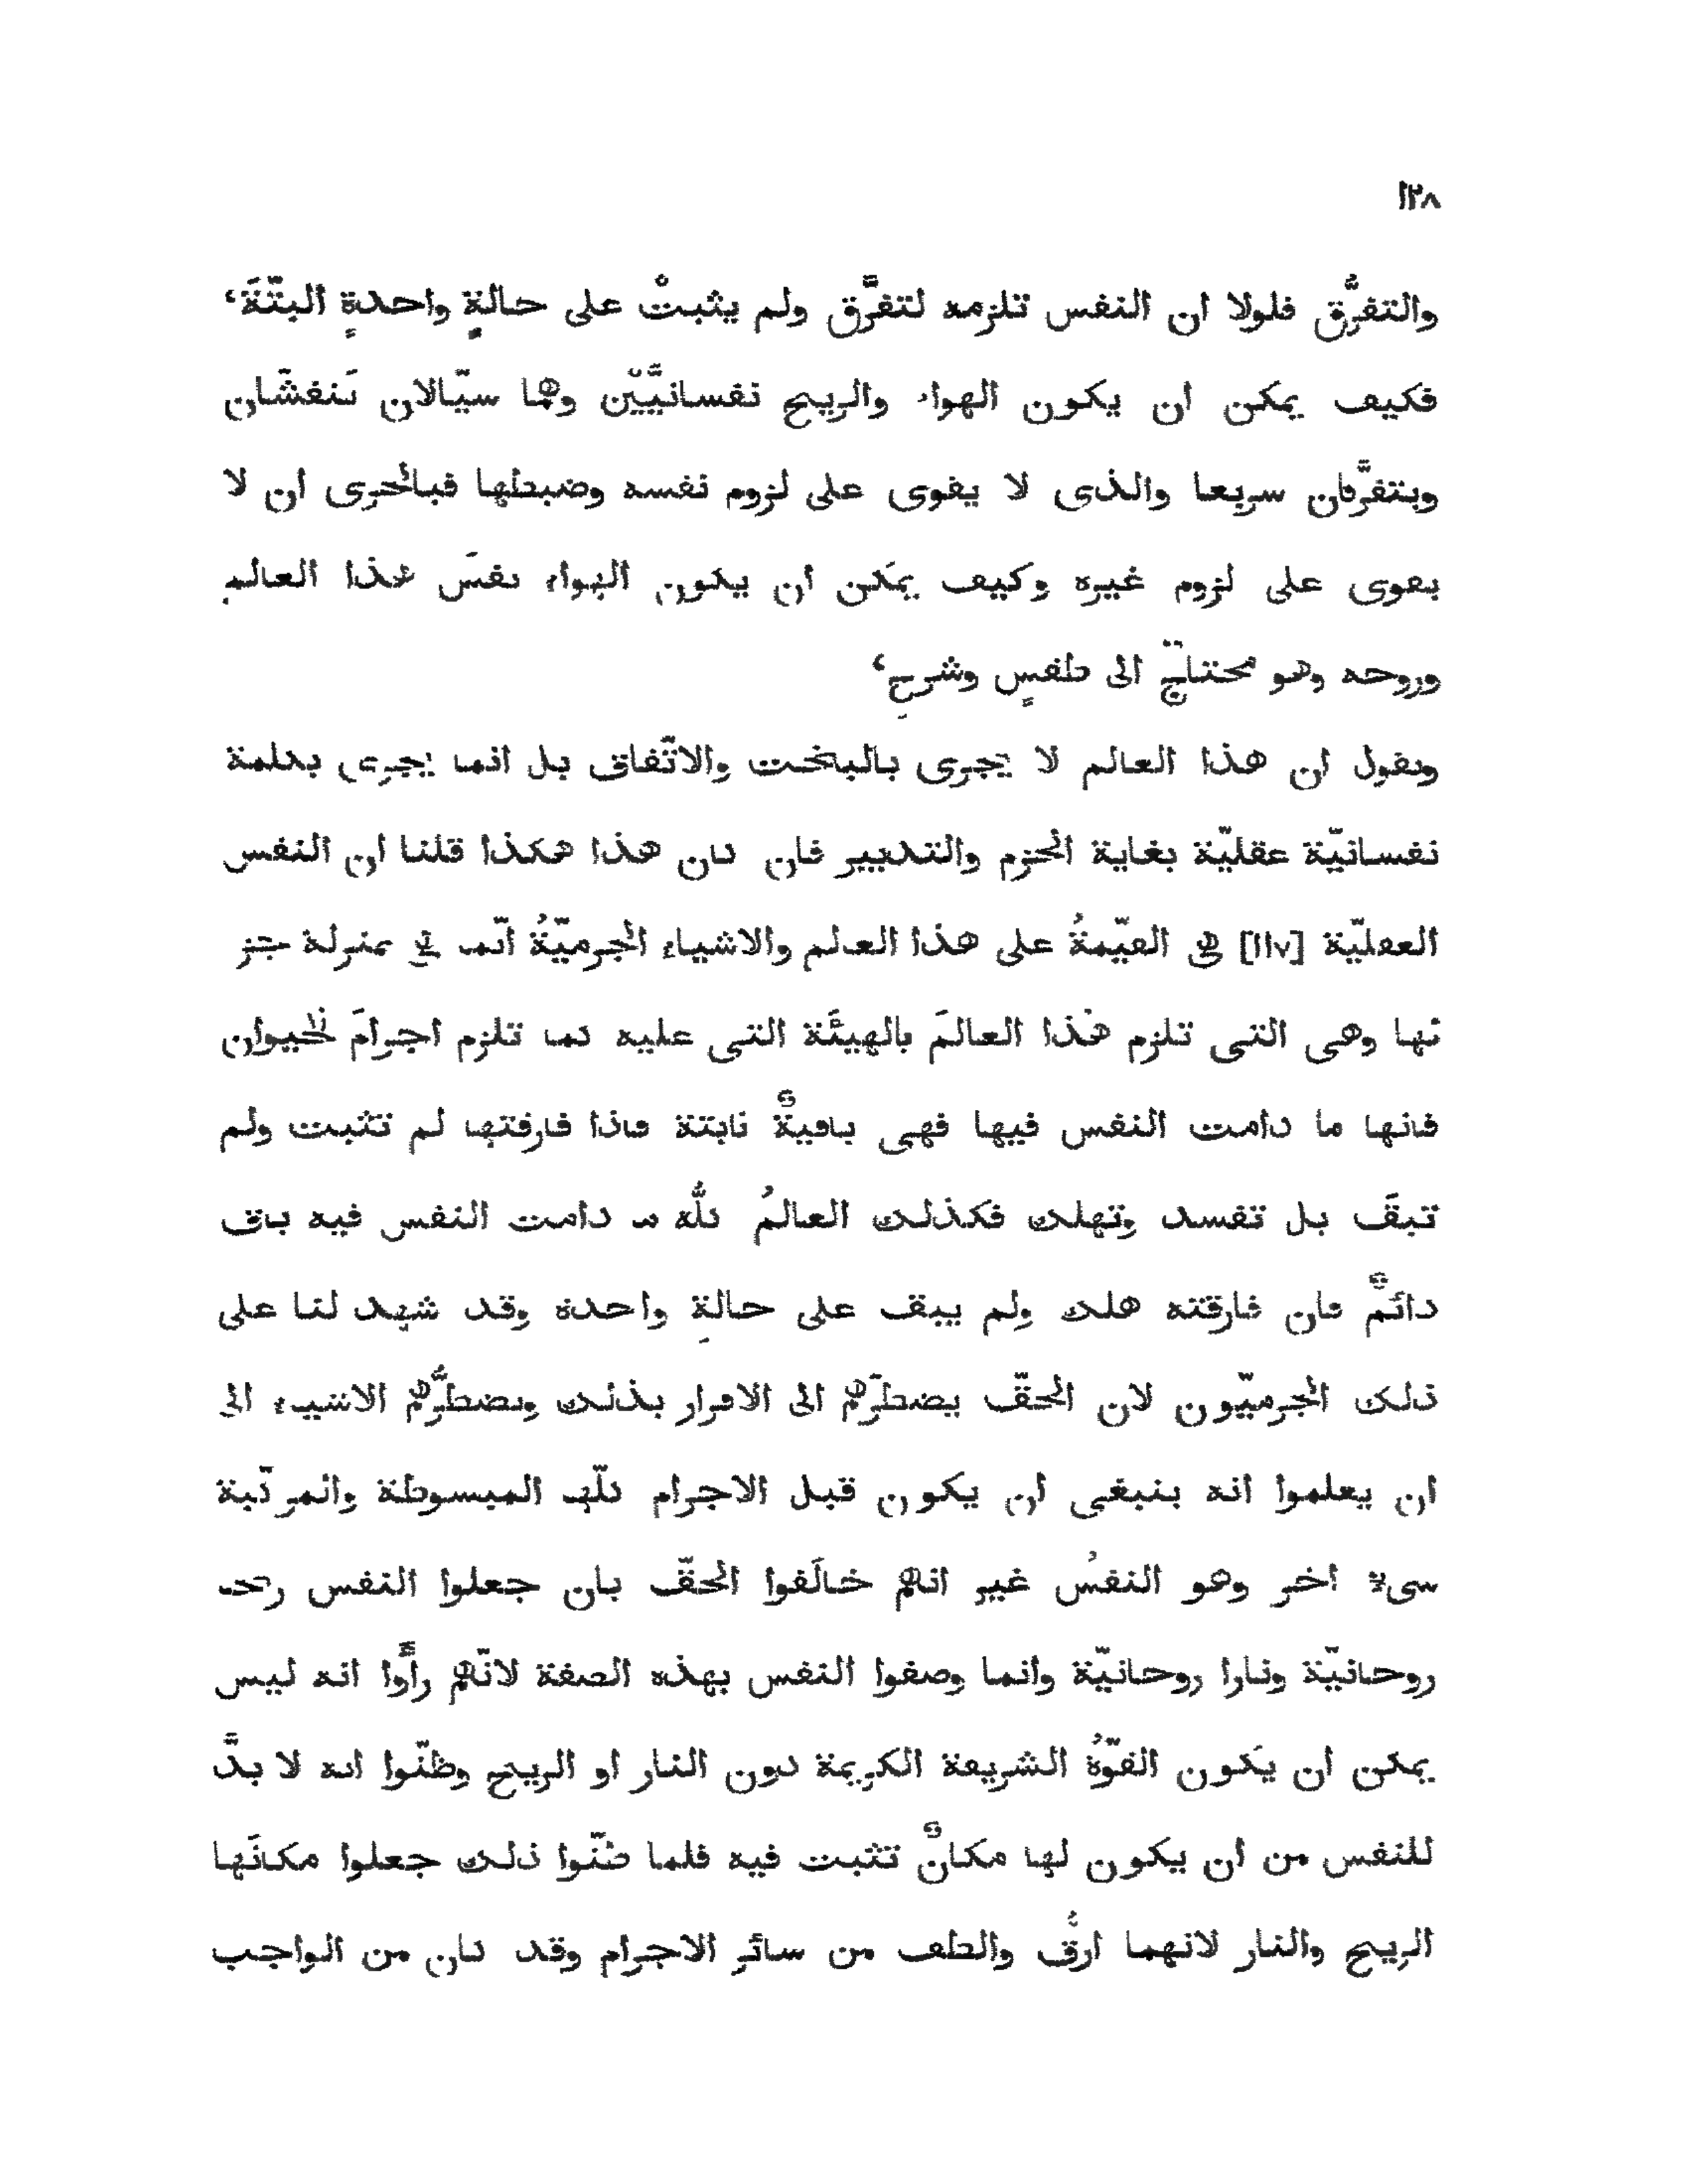 ١٢٨
والتفرُّق فلولا ان النفس تلزمه لتفرَّق ولم يثبتْ على حالةٍ واحدةٍ البتّةَ،
فكيف يمكن ان يكون الهواء والريح نفسانيَّيْن وهما سيّالان ينفشّان
ويتفرَّقان سريعا والذى لا يقوى على لزوم نفسه وضبطها فبالحرى ان لا
يقوى على لزوم غيره وكيف يمكن ان يكون الهواء نفسَ هذا العالم
وروحه وهو محتاج الى طقسٍ وشرحٍ،
ونقول ان هذا العالم لا يجرى بالبخت والاتّفاق بل انما يجرى بكلمة
نفسانيّة عقليّة بغاية الحزم والتدبير فان كان هذا هكذا قلنا ان النفس
العقليّة [١١٧] هى القيّمةُ على هذا العالم والاشياء الجرميّةُ انّما هى بمنزلة جز
ئها وهى التى تلزم هٰذا العالمَ بالهيئَة التى عليه كما تلزم اجرامَ الحيوان
فانها ما دامت النفس فيها فهى باقيةٌ ثابتة فاذا فارقتها لم تثبت ولم
تبقَ بل تفسد وتهلك فكذلك العالمُ كلُّه ما دامت النفس فيه باق
دائمٌ فان فارقته هلك ولم يبقف على حالةٍ واحدة وقد شهد لنا على
ذلك الجرميّون لان الحقّ يضطرّهم الى الاقرار بذلك وتضطرُّهم الاشياء الى
ان يعلموا انه ينبغى ان يكون قبل الاجرام كلّها المبسوطة والمركّبة
شىءٌ اخر وهو النفسُ غير انهم خالَفوا الحقّ بان جعلوا النفس ريحا
روحانيّة ونارا روحانيّة وانما وصفوا النفس بهذه الصفة لانّهم رأَوا انه ليس
يمكن ان يكون القوّةُ الشريفة الكريمة دون النار او الريح وظنّوا انه لا بدَّ
للنفس من ان يكون لها مكانٌ تثبت فيه فلما ظنّوا ذلك جعلوا مكانَها
الريح والنار لانهما ارقُّ والطف من سائر الاجرام وقد كان من الواجب